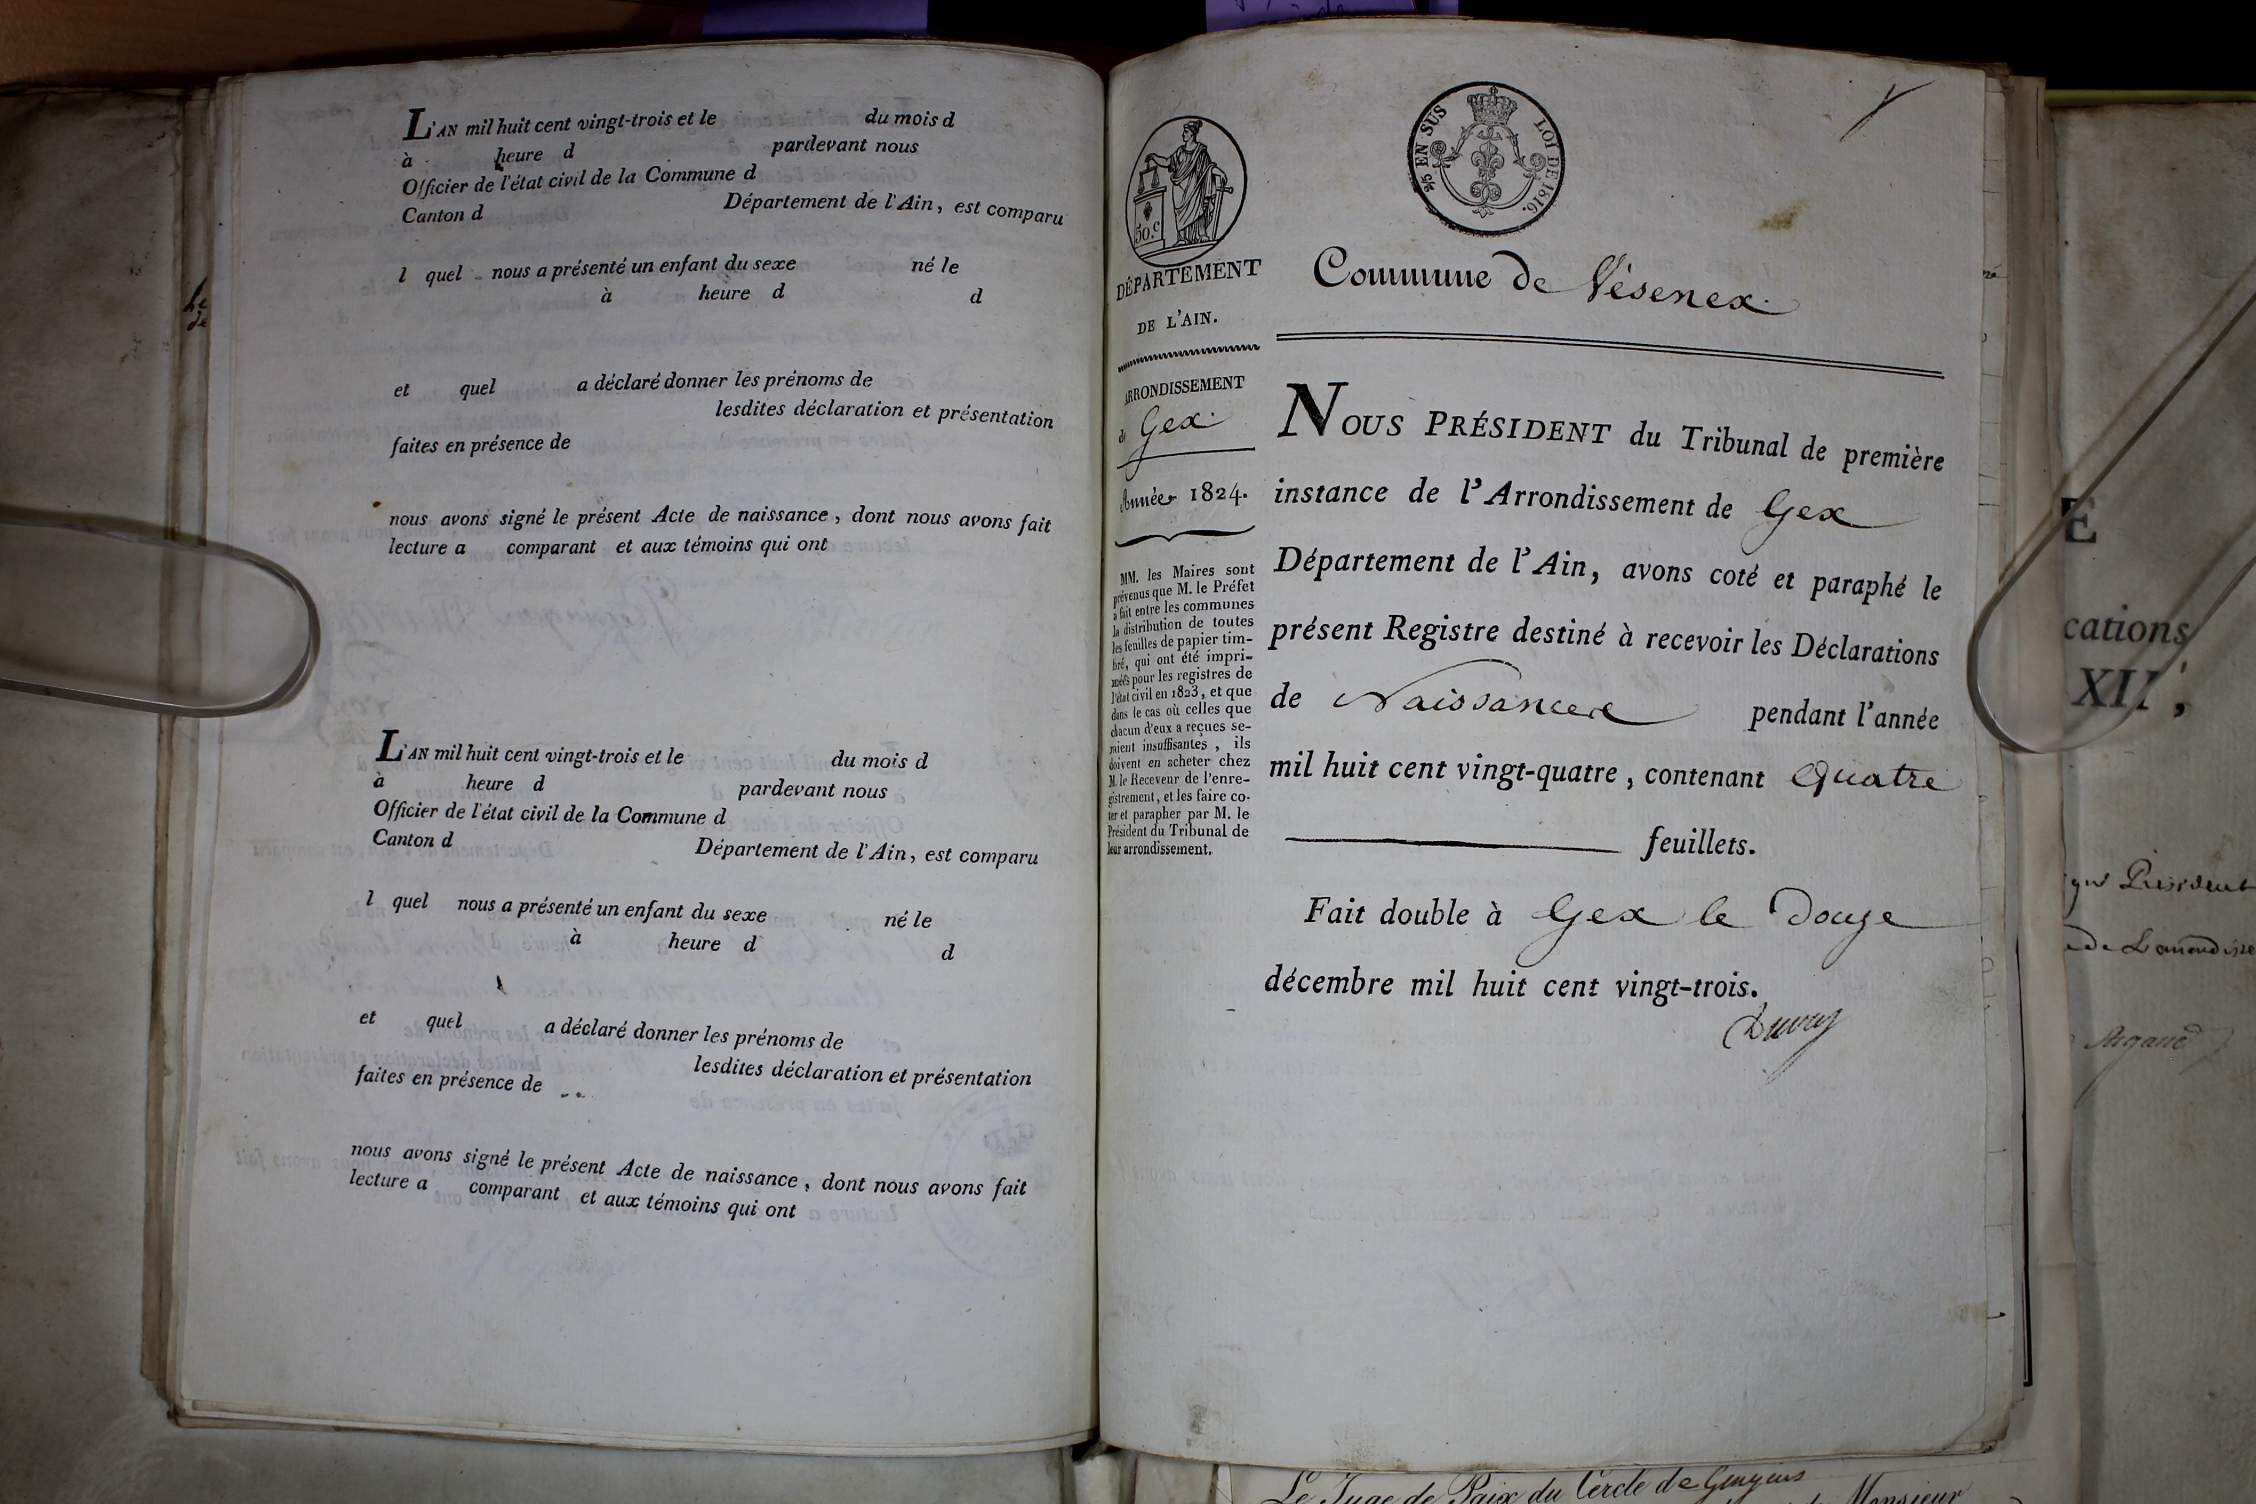 L'AN mil huit cent vingt-trois et le du mois d
à heure d pardevant nous
Officier de l'état civil de la Commune d
Canton d Département de l'Ain, est comparu
l quel nous a présenté un enfant du sexe né le
à heure d d
et quel a déclaré donner les prénoms de
lesdites déclaration et présentation
faites en présence de
nous avons signé le présent Acte de naissance, dont nous avons fait
lecture a comparant et aux témoins qui ont
L'AN mil huit cent vingt-trois et le du mois d
à heure d pardevant nous
Officier de l'état civil de la Commune d
Canton d Département de l'Ain, est comparu
l quel nous a présenté un enfant du sexe né le
à heure d d
et quel a déclaré donner les prénoms de
lesdites déclaration et présentation
faites en présence de
nous avons signé le présent Acte de naissance, dont nous avons fait
lecture a comparant et aux témoins qui ont
50.c
EN SUS LOI DE 1816.
DÉPARTEMENT
DE L'AIN.
ARRONDISSEMENT
de Gex.
Année 1824.
MM. les Maires sont
prévenus que M. le Préfet
a fait entre les communes
la distribution de toutes
les feuilles de papier tim-
bré, qui ont été impri-
mées pour les registres de
l'état civil en 1823, et que
dans le cas où celles que
chacun d'eux a reçues se-
raient insuffisantes, ils
doivent en acheter chez
M. le Receveur de l'enre-
gistrement, et les faire co-
ter et parapher par M. le
Président du Tribunal de
leur arrondissement.
Commune de Vésenex.
NOUS PRÉSIDENT du Tribunal de première
instance de l'Arrondissement de Gex
Département de l'Ain, avons coté et paraphé le
présent Registre destiné à recevoir les Déclarations
de Naissance pendant l'année
mil huit cent vingt-quatre, contenant Quatre
feuillets.
Fait double à Gex le Douze
décembre mil huit cent vingt-trois.
E
cations
XII,
Président
Le Juge de Paix du Cercle de Gingins
Monsieur